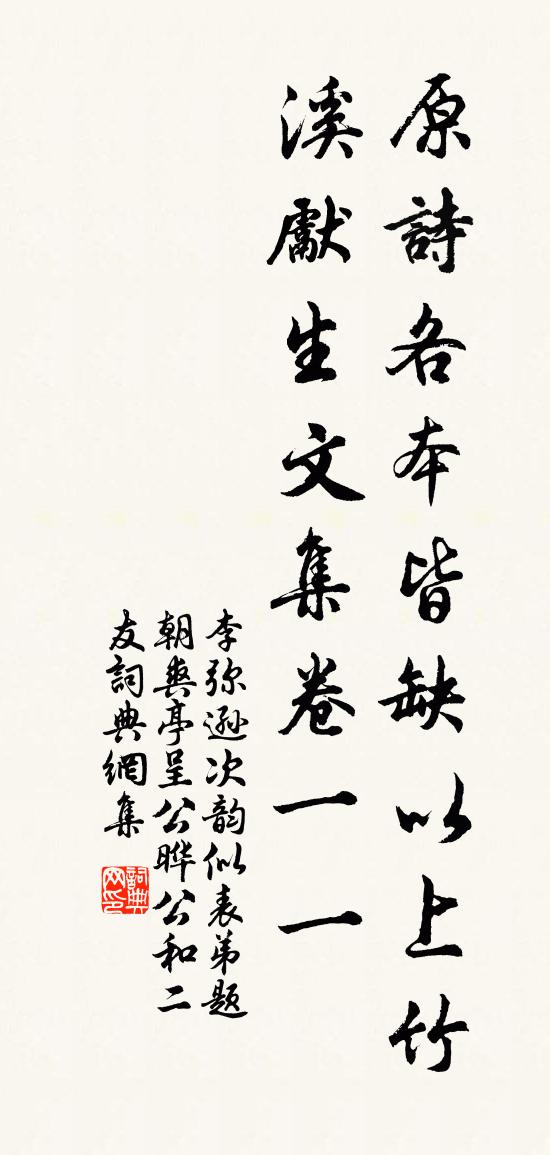 原詩各本皆缺以上竹
溪獻生文集卷一一
李弥遜次韵似表弟題
朝爽亭呈公晔公和二
友詞典網集
詞典网印